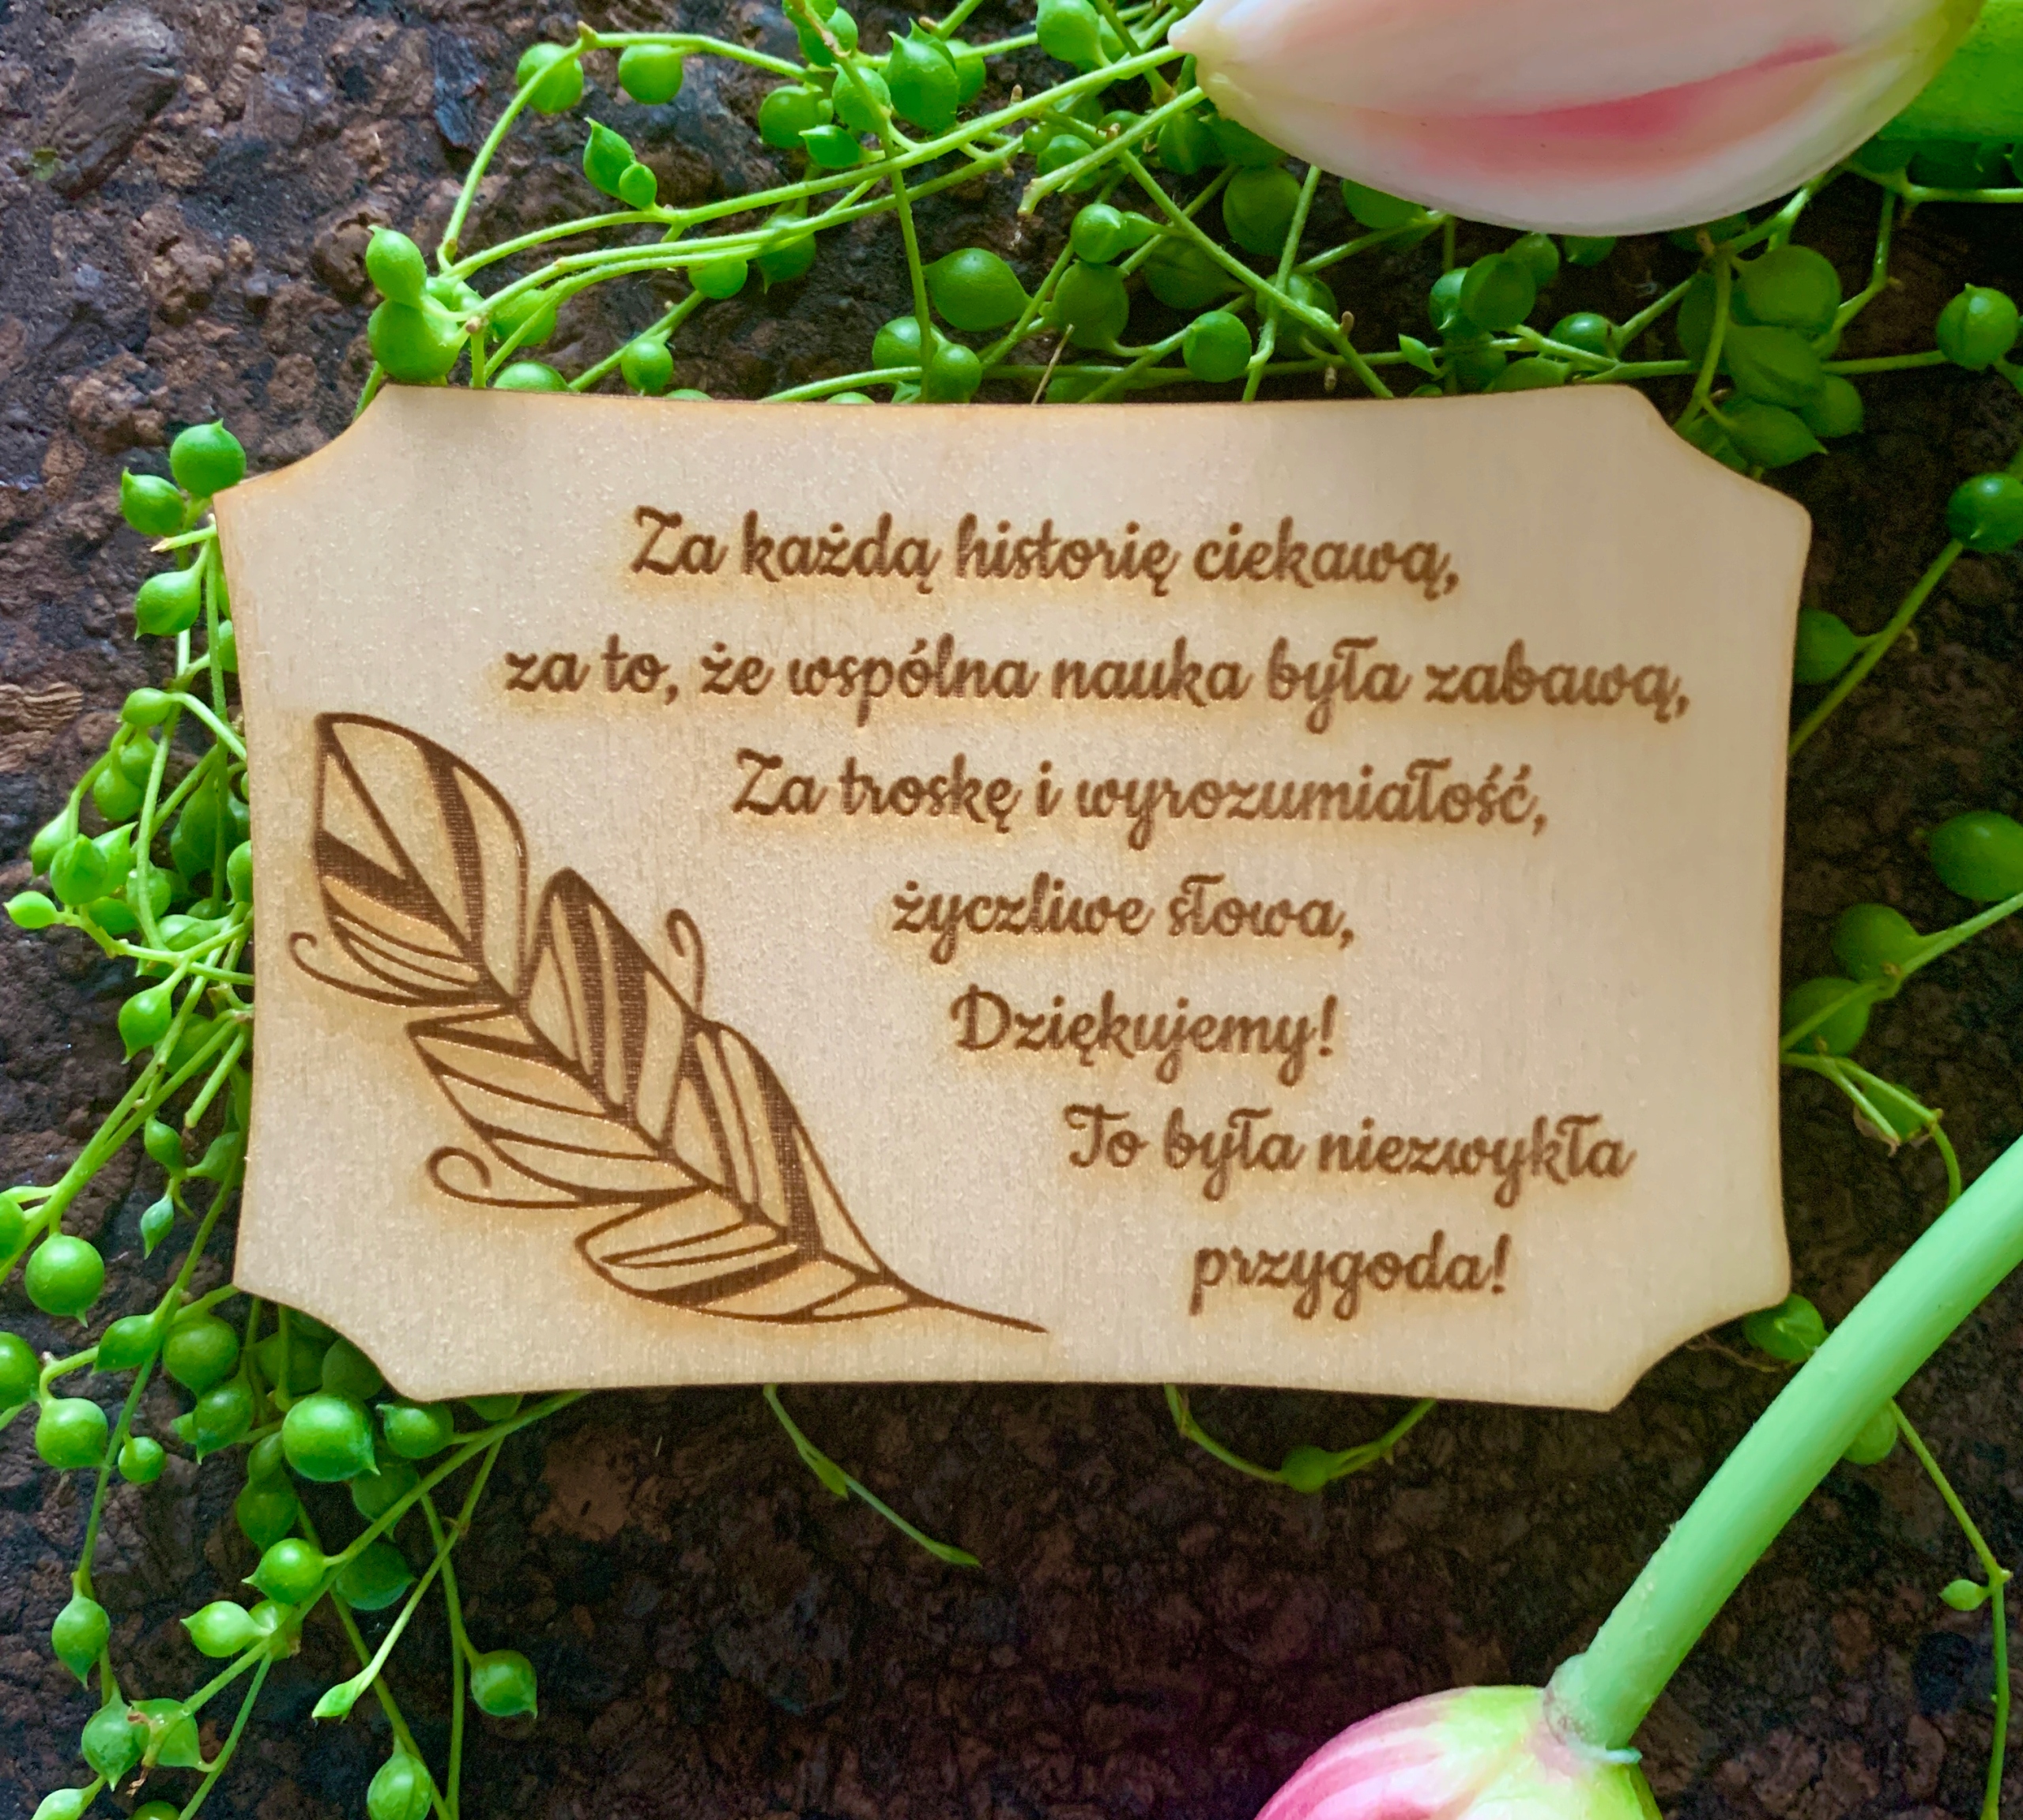 Za każdą historię ciekawą,
za to, że wspólna nauka była zabawą,
Za troskę i wyrozumiałość,
życzliwe słowa,
Dziękujemy!
To była niezwykła
przygoda!